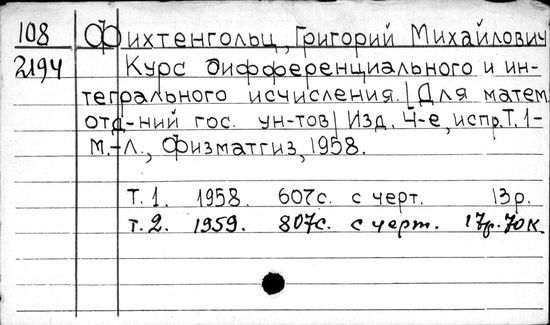 108 Фихтенгольц, Григорий Михайлович
2194 Курс дифференциального и ин-
тегрального исчисления. |Для матем.
отд-ний гос. ун-тов| Изд. 4-е, испр. Т. 1-
М.-Л., Физматгиз, 1958.
Т. 1. 1958. 607с. с черт. 13р.
т. 2. 1959. 807с. с черт. 17р. 70к.